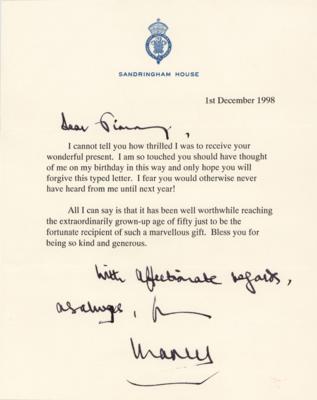 SANDRINGHAM HOUSE
1st December 1998
Dear
I cannot tell you how thrilled I was to receive your
wonderful present. I am so touched you should have thought
of me on my birthday in this way and only hope you will
forgive this typed letter. I fear you would otherwise never
have heard from me until next year!
All I can say is that it has been well worthwhile reaching
the extraordinarily grown-up age of fifty just to be the
fortunate recipient of such a marvellous gift. Bless you for
being so kind and generous.
With affectionate regards,
as always,
Charles